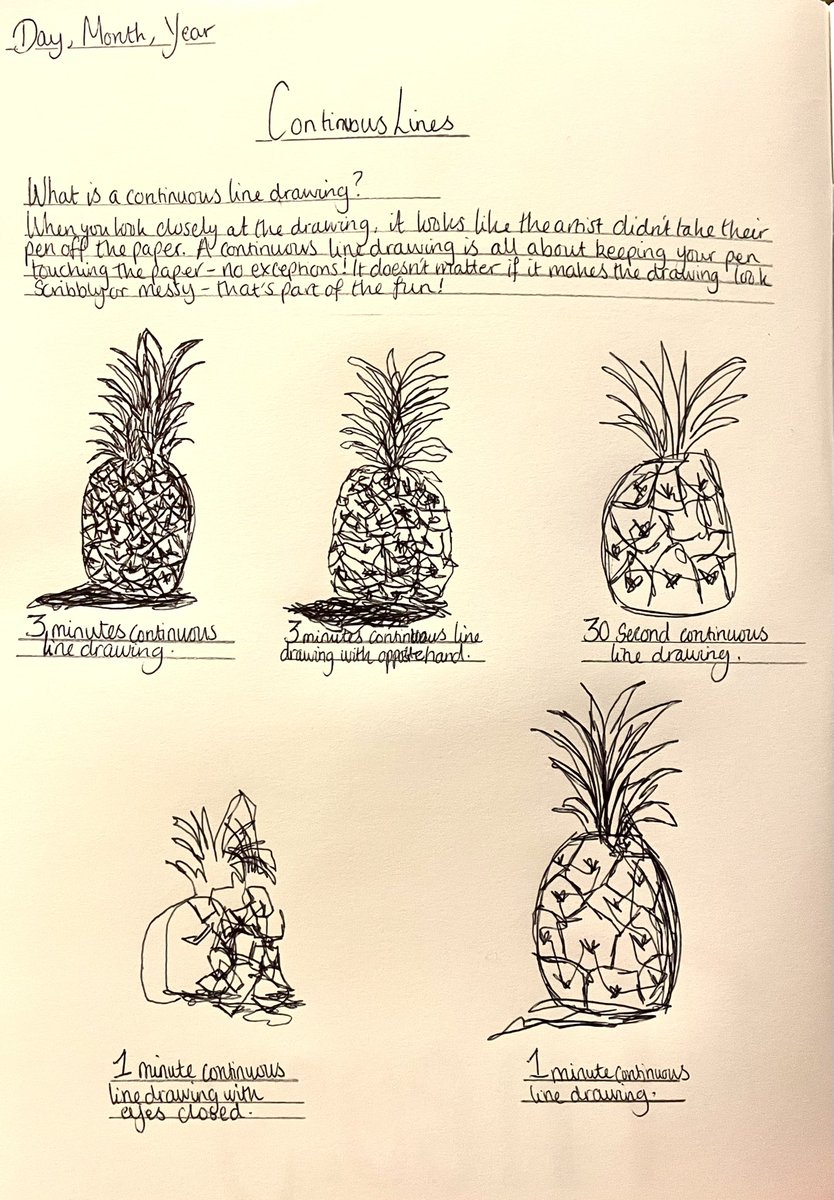 Day, Month, Year
Continuous Lines
What is a continuous line drawing?
When you look closely at the drawing, it looks like the artist didn't take their
pen off the paper. A continuous line drawing is all about keeping your pen
touching the paper - no exceptions! It doesn't matter if it makes the drawing look
Scribbly or messy - that's part of the fun!
3 minutes continuous
line drawing.
3 minutes continuous line
drawing with opposite hand.
30 Second continuous
line drawing.
1 minute continuous
line drawing with
eyes closed.
1 minute continuous
line drawing.